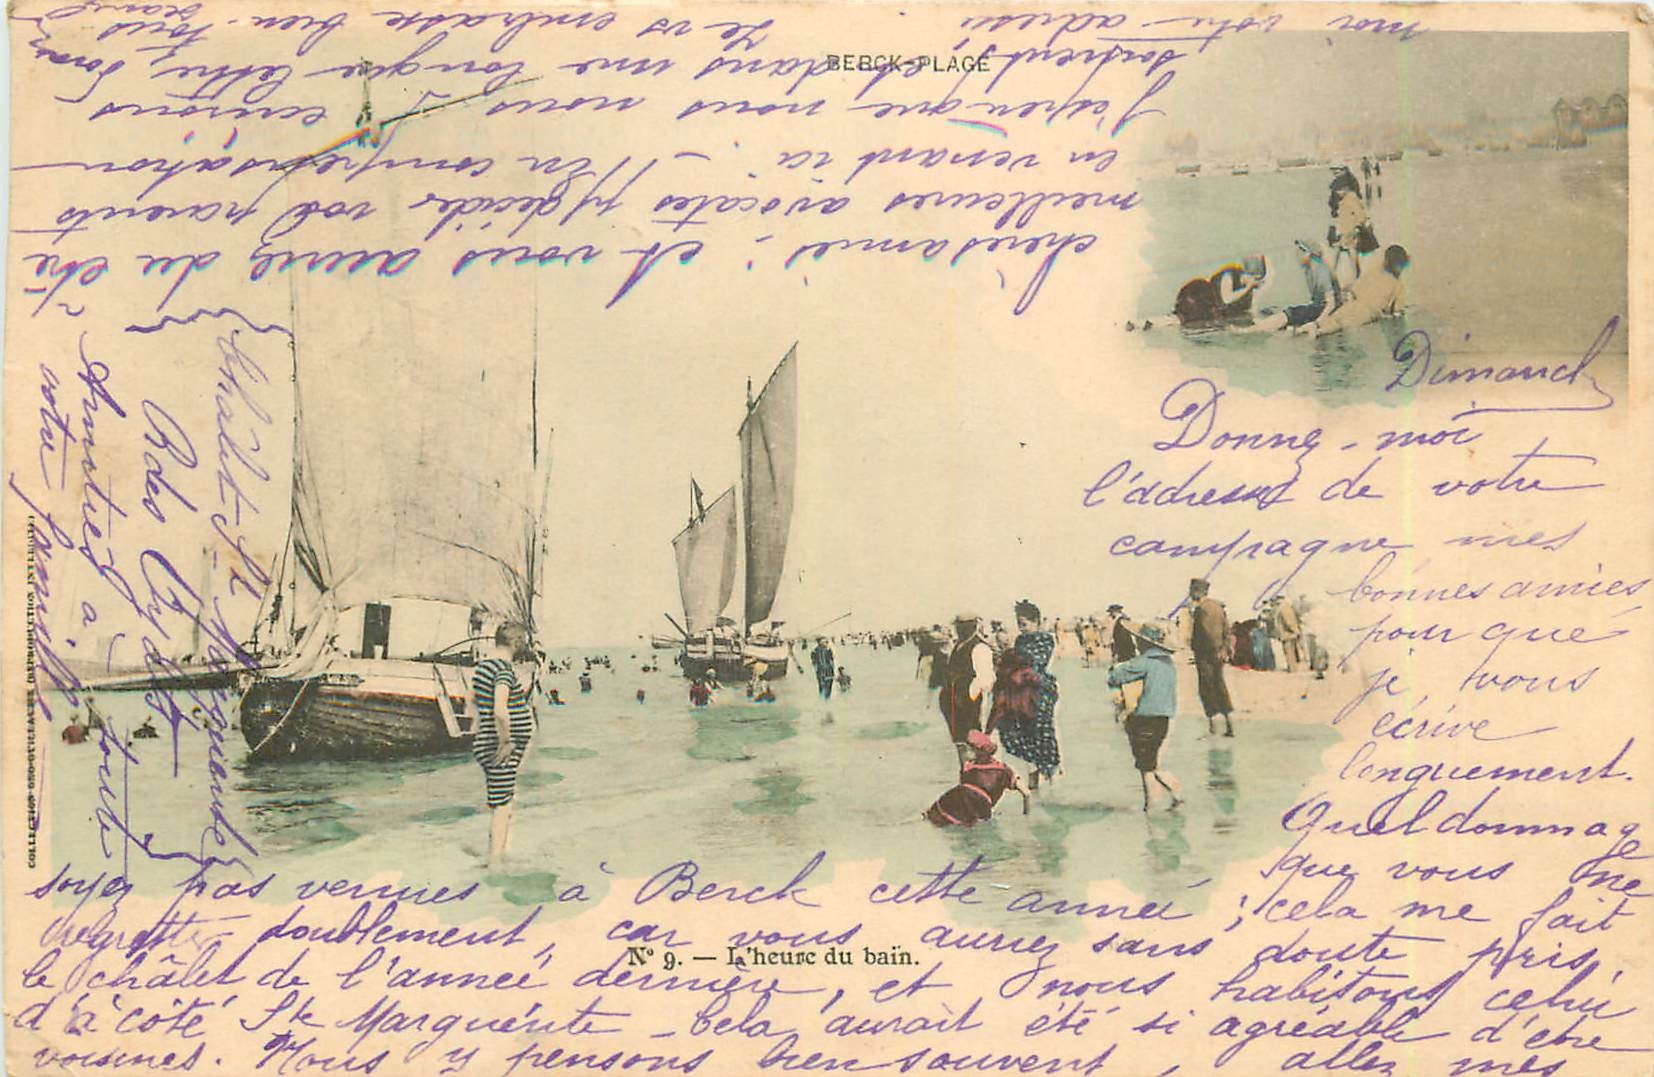 BERCK-PLAGE
Dimanch
Donnez-moi
l'adresse de votre
campagne mes
bonnes amies
pour que
je vous
écrive
longuement.
Quel dommage
que vous ne
soyez pas venues à Berck cette année ; cela me fait
regretter doublement, car vous auriez sans doute pris,
le châlet de l'année dernière, et nous habitons celui
d'à côté Ste Marguerite - Cela aurait été si agréable d'être
voisines. Nous y pensons bien souvent, allez mes
chères amies ! et vous auriez du être
meilleures avocates p/ décider vos parents
en venant ici - En compensation
J'espère que nous nous écrirons
souvent et dans une longue lettre,
moi votre adresse. Je vs embrasse bien fort
Châlet Ste Marguerite
R des
Amitiés à toute
votre famille
N° 9. — L'heure du bain.
COLLECTION
(REPRODUCTION INTERDITE)